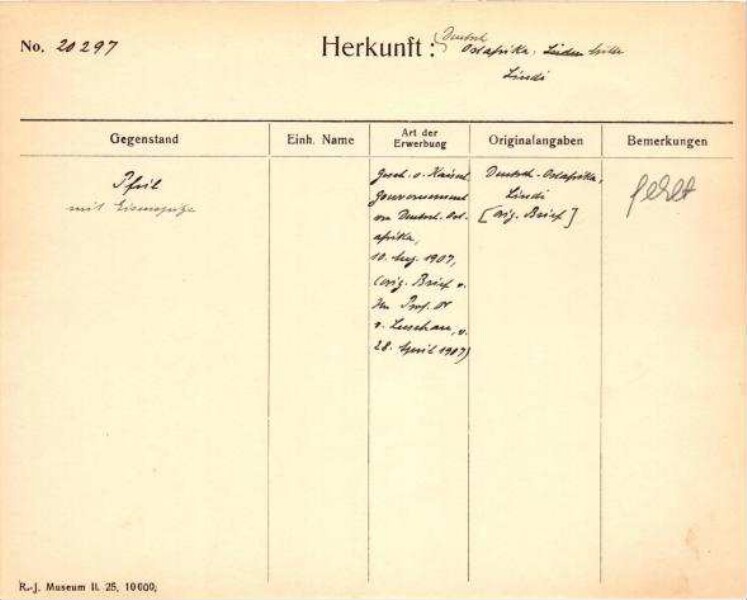 No. 20297
Herkunft: Deutsch
Ostafrika,
Lindi
Gegenstand
Einh. Name
Art der
Erwerbung
Originalangaben
Bemerkungen
Pfeil
mit Eisenspitze
Gesch. v. Kaiserl.
Gouvernement
von Deutsch-Ost-
afrika,
10. Aug. 1907,
(orig. Brief v.
Hn Prof. Dr
v. Luschan, v.
28. April 1907)
Deutsch-Ostafrika,
Lindi
[orig. Brief]
fehlt
R.-J. Museum II. 25, 10000;